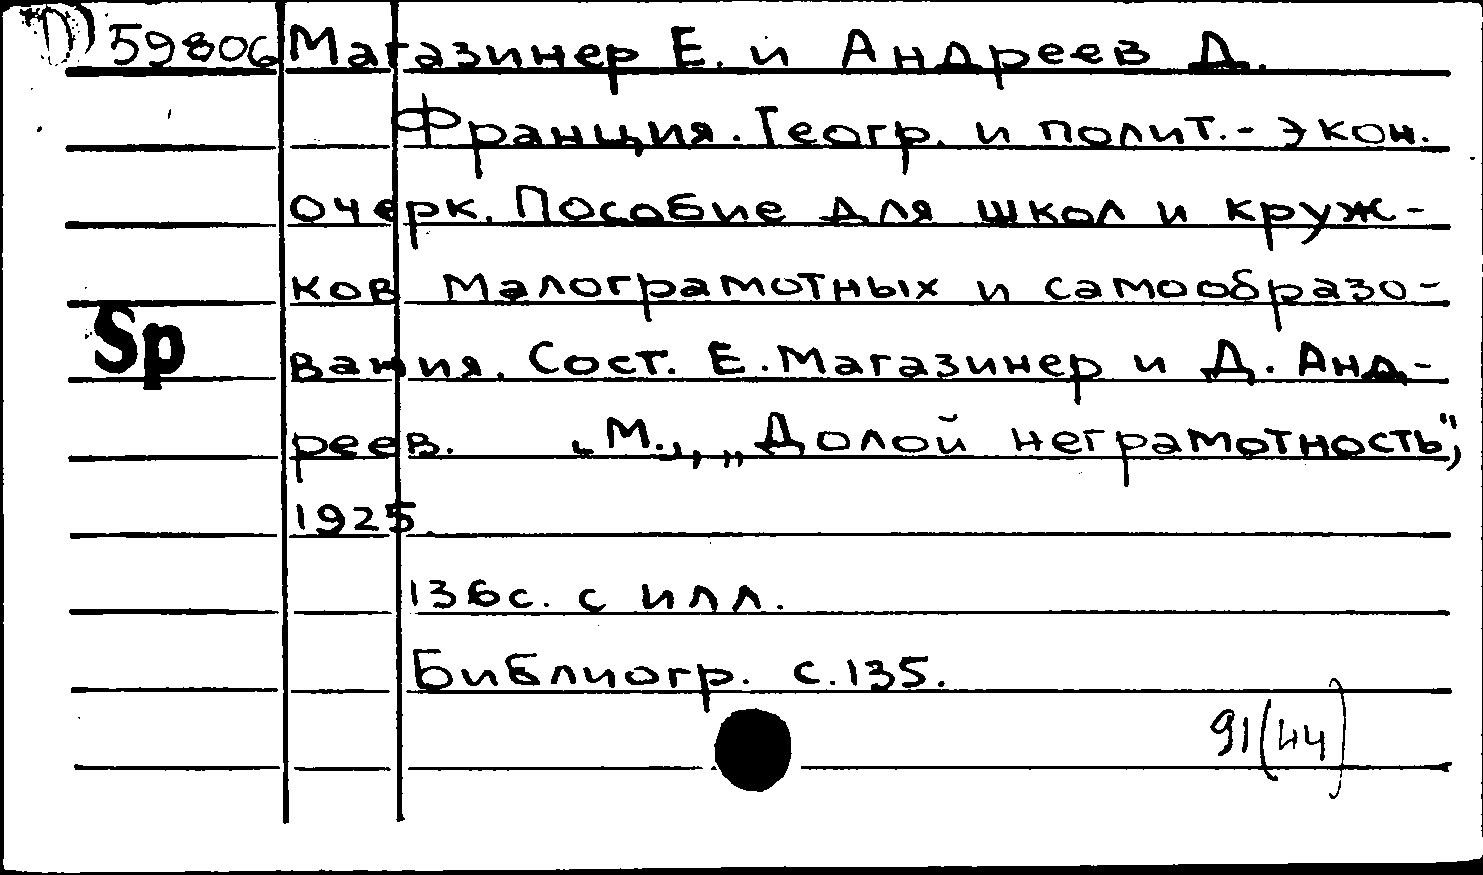 59806 Магазинер Е. и Андреев Д.
Франция. Геогр. и полит.- экон.
очерк. Пособие для школ и круж-
ков малограмотных и самообразо-
Sp
вания. Сост. Е. Магазинер и Д. Анд-
реев. М., „Долой неграмотность",
1925.
136с. с илл.
Библиогр. с.135.
91(44)